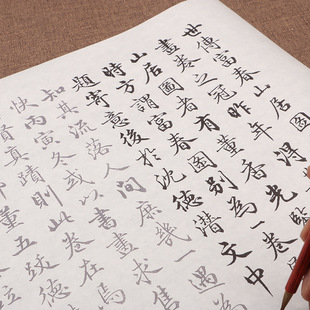 世傳富春山居圖
畫卷之冠昨年得
山居圖者有董香光
時方謂富春圖別為一卷
題寄意後於沈德潛文中
知其流落人間庶幾一遇為
快丙寅冬或以書畫求售
真蹟則此卷在焉
董五跋德